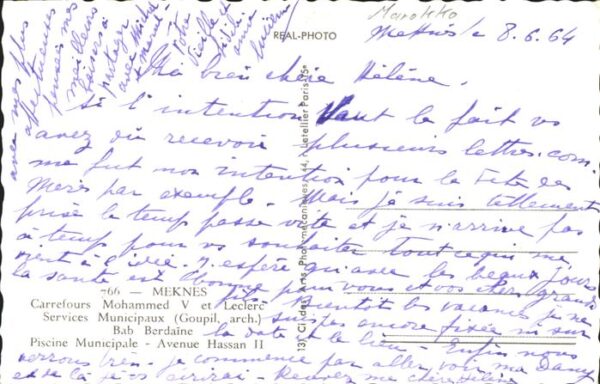 Marokko
REAL-PHOTO
Meknès le 8.6.64
Ma bien chère Hélène.
Si l'intention vaut le fait vs
avez dû recevoir plusieurs lettres. com-
me fut mon intention pour la Fête des
Mères par exemple. Mais je suis tellement
prise le temps passe vite et je n'arrive pas
à temps pour vs souhaiter tout ce qui me
vient à l'idée. J'espère qu'avec les beaux jours
la santé est bonne pour vous et vos chers grands
fils. Bientôt les vacances je ne
suis pas encore fixée ni sur
la date et le lieu - Enfin nous
verrons bien. je commence par aller voir ma Dany
et de là je vs écrirai -
avec mes plus
affectueuses
pensées mes
meilleurs
baisers à
partager
avec
Votre
vieille
petite
amie
(3) Cl. des Arts Photomécaniques, 44, r. Letellier Paris-15e
-66 - MEKNES
Carrefours Mohammed V et Leclerc
Services Municipaux (Goupil, arch.)
Bab Berdaïne
Piscine Municipale - Avenue Hassan II